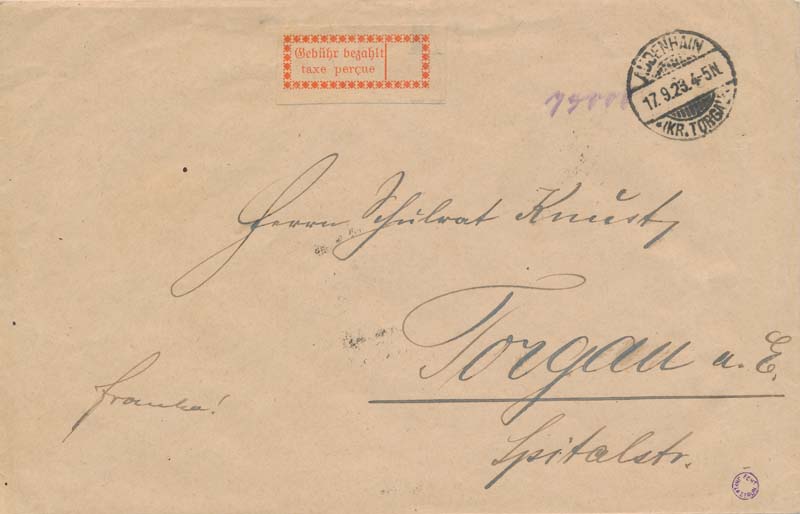 Gebühr bezahlt
taxe perçue
AUDENHAIN
17.9.23.4-5N
(KR. TORGAU)
75000
Herrn Schulrat Knust,
Torgau a. E.
Spitalstr.
franko!